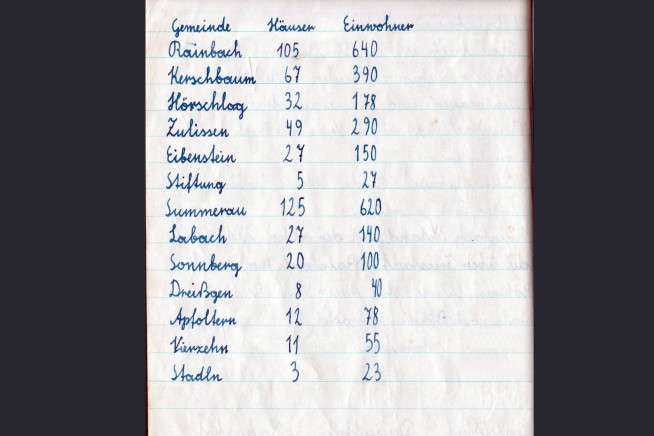 Gemeinde Häuser Einwohner
Rainbach 105 640
Kerschbaum 67 390
Hörschlag 32 178
Zulissen 49 290
Eibenstein 27 150
Stiftung 5 27
Summerau 125 620
Labach 27 140
Sonnberg 20 100
Dreißgen 8 40
Apfoltern 12 78
Vierzehn 11 55
Stadln 3 23